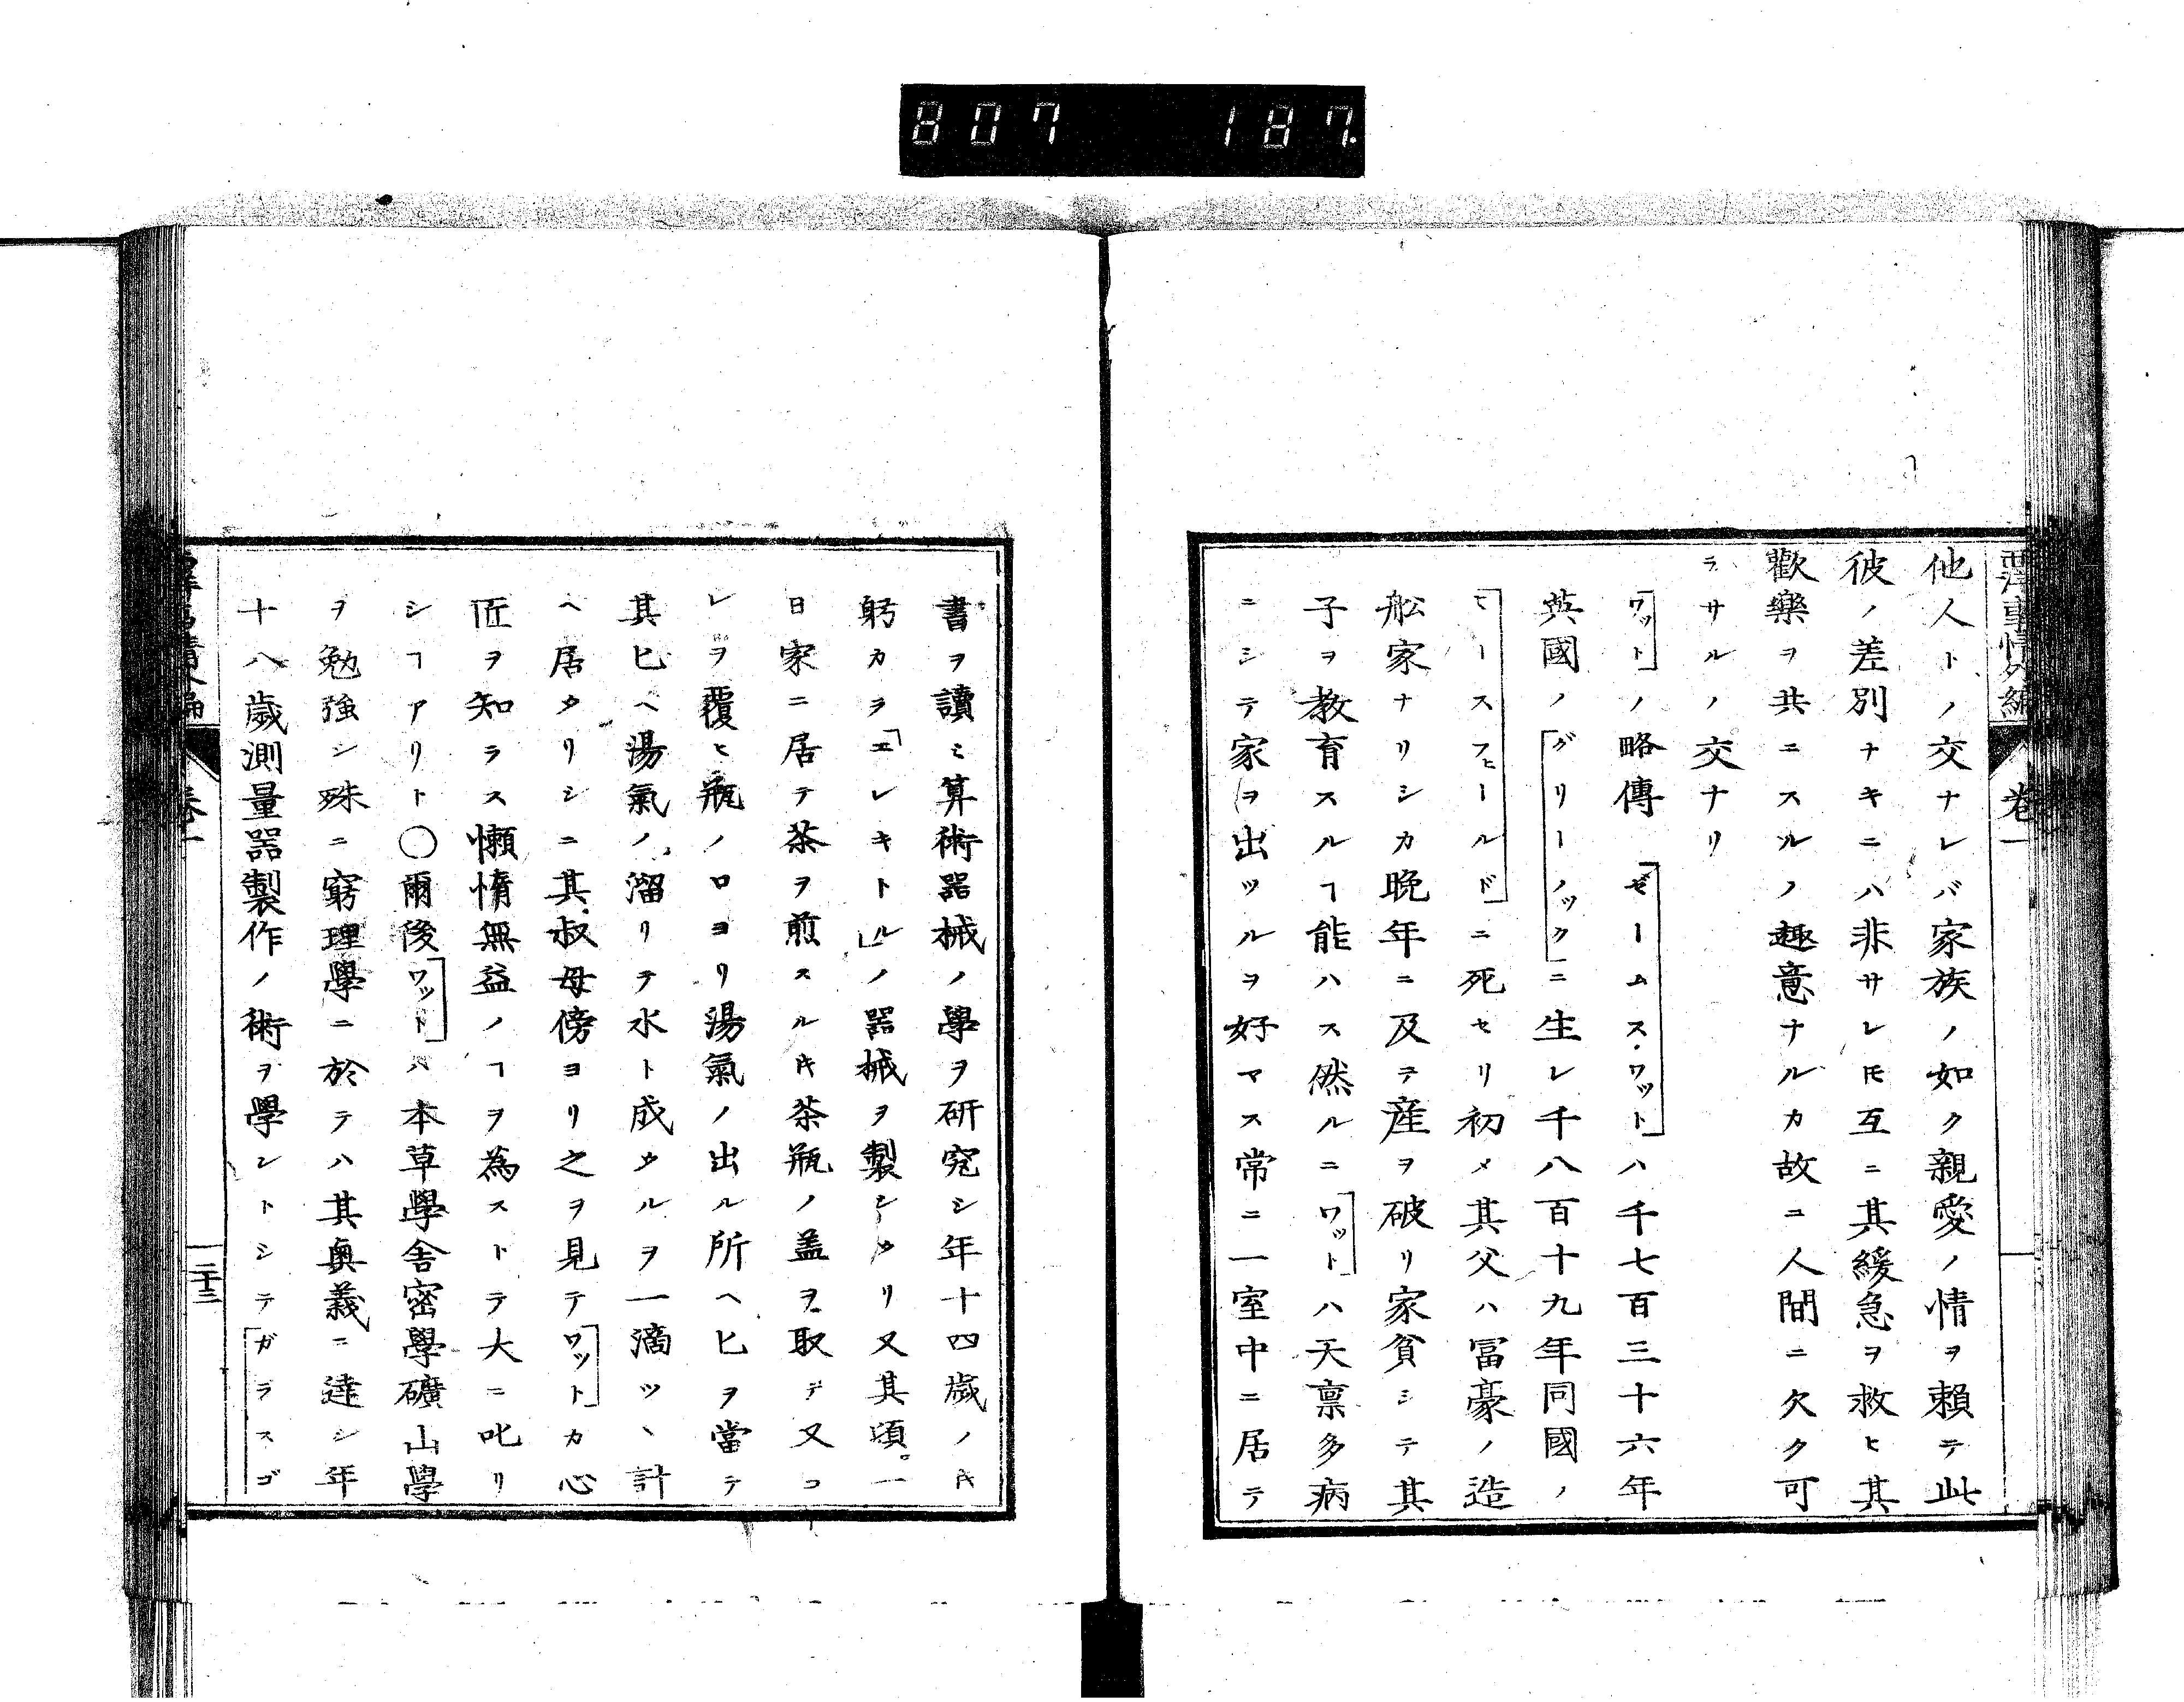 807 187.
西洋事情外編 卷一
他人トノ交ナレバ家族ノ如ク親愛ノ情ヲ頼テ此
彼ノ差別ナキニハ非サレ𪜈互ニ其緩急ヲ救ヒ其
歡樂ヲ共ニスルノ趣意ナルカ故ニ人間ニ欠ク可
ラサルノ交ナリ
「ワット」ノ略傳 「ゼームス・ワット」ハ千七百三十六年
英國ノ「グリーノック」ニ生レ千八百十九年同國ノ
「ヒースフヒールド」ニ死セリ初メ其父ハ冨豪ノ造
舩家ナリシカ晩年ニ及テ産ヲ破リ家貧シテ其
子ヲ教育スルヿ能ハス然ルニ「ワット」ハ天禀多病
ニシテ家ヲ出ツルヲ好マス常ニ一室中ニ居テ
書ヲ讀ミ算術器械ノ學ヲ研究シ年十四歳ノ𪜈
躬カラ「エレキトル」ノ器械ヲ製シタリ又其頃一
日家ニ居テ茶ヲ煎スル𪜈茶瓶ノ盖ヲ取テ又コ
レヲ覆ヒ瓶ノロヨリ湯氣ノ出ル所ヘ匕ヲ當テ
其匕ヘ湯氣ノ溜リテ水ト成タルヲ一滴ツヽ計
ヘ居タリシニ其叔母傍ヨリ之ヲ見テ「ワット」カ心
匠ヲ知ラス懶惰無益ノヿヲ為ストテ大ニ叱リ
シヿアリト〇爾後「ワット」ハ本草學舍密學礦山學
ヲ勉強シ殊ニ窮理學ニ於テハ其奥義ニ達シ年
十八歳測量器製作ノ術ヲ學ントシテ「ガラスゴ
卷一
二十三